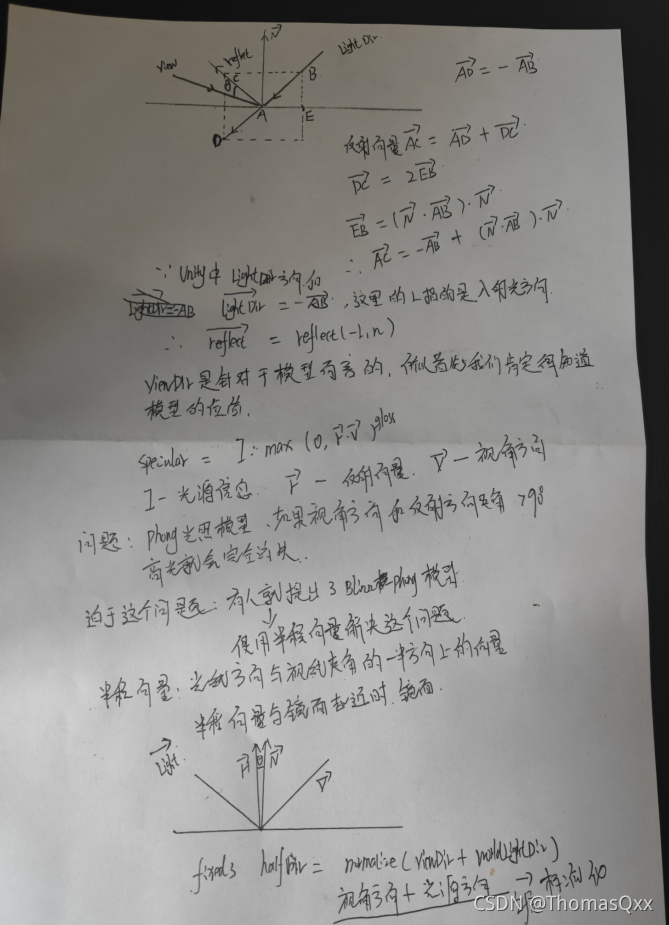 N
view
reflect
Light Dir
C
B
A
E
D
AD = - AB
反射向量 AC = AD + DC
DC = 2EB
EB = (N · AB) · N
∴ AC = -AB + (N · AB) · N
∵ Unity中 LightDir方向和
LightDir=-AB LightDir = -AB, 这里的L指的是入射光方向.
∴ reflect = reflect(-l,n)
ViewDir是针对于模型而言的, 所以 我们肯定得知道
模型的位置.
Specular = I · max (0, r·v)gloss
I - 光源信息. r - 反射向量. v - 视角方向
问题: Phong光照模型, 如果视角方向和反射方向夹角 >90°
高光就会完全消失.
迫于这个问题: 有人就提出了Blinn Phong模型
使用半程向量解决这个问题.
半程向量: 光线方向与视线夹角的一半方向上的向量
半程向量与镜面 近时. 镜面.
Light
H
θ
N
V
fixed3 halfDir = normalize(viewDir + worldLightDir)
视角方向 + 光源方向
CSDN @ThomasQxx